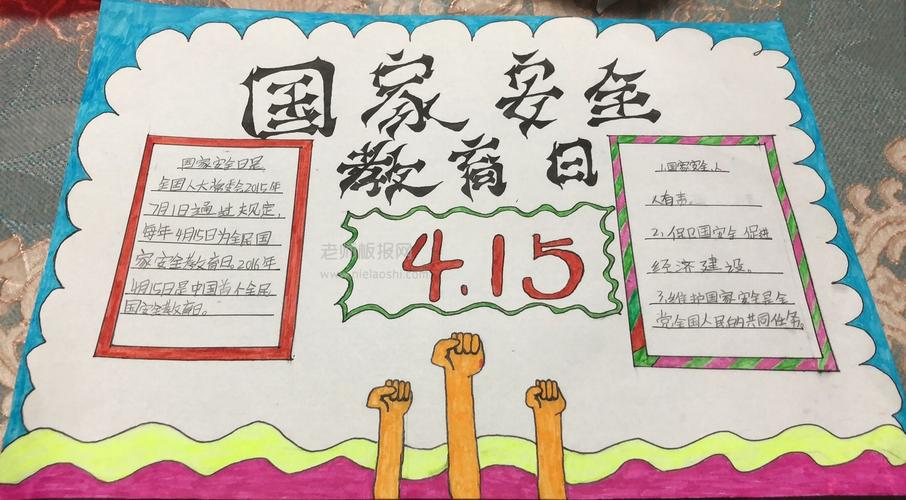 国家安全
教育日
4.15
国家安全日是
全国人大常委会2015年
7月1日通过夫规定,
每年4月15日为全民国
家安全教育日。2016年
4月15日是中国首个全民
国安全教育日。
1.国家安全,人
人有责。
2、保卫国安全 促进
经济建设。
3.维护国家安全是全
党全国人民的共同任务。
老师板报网